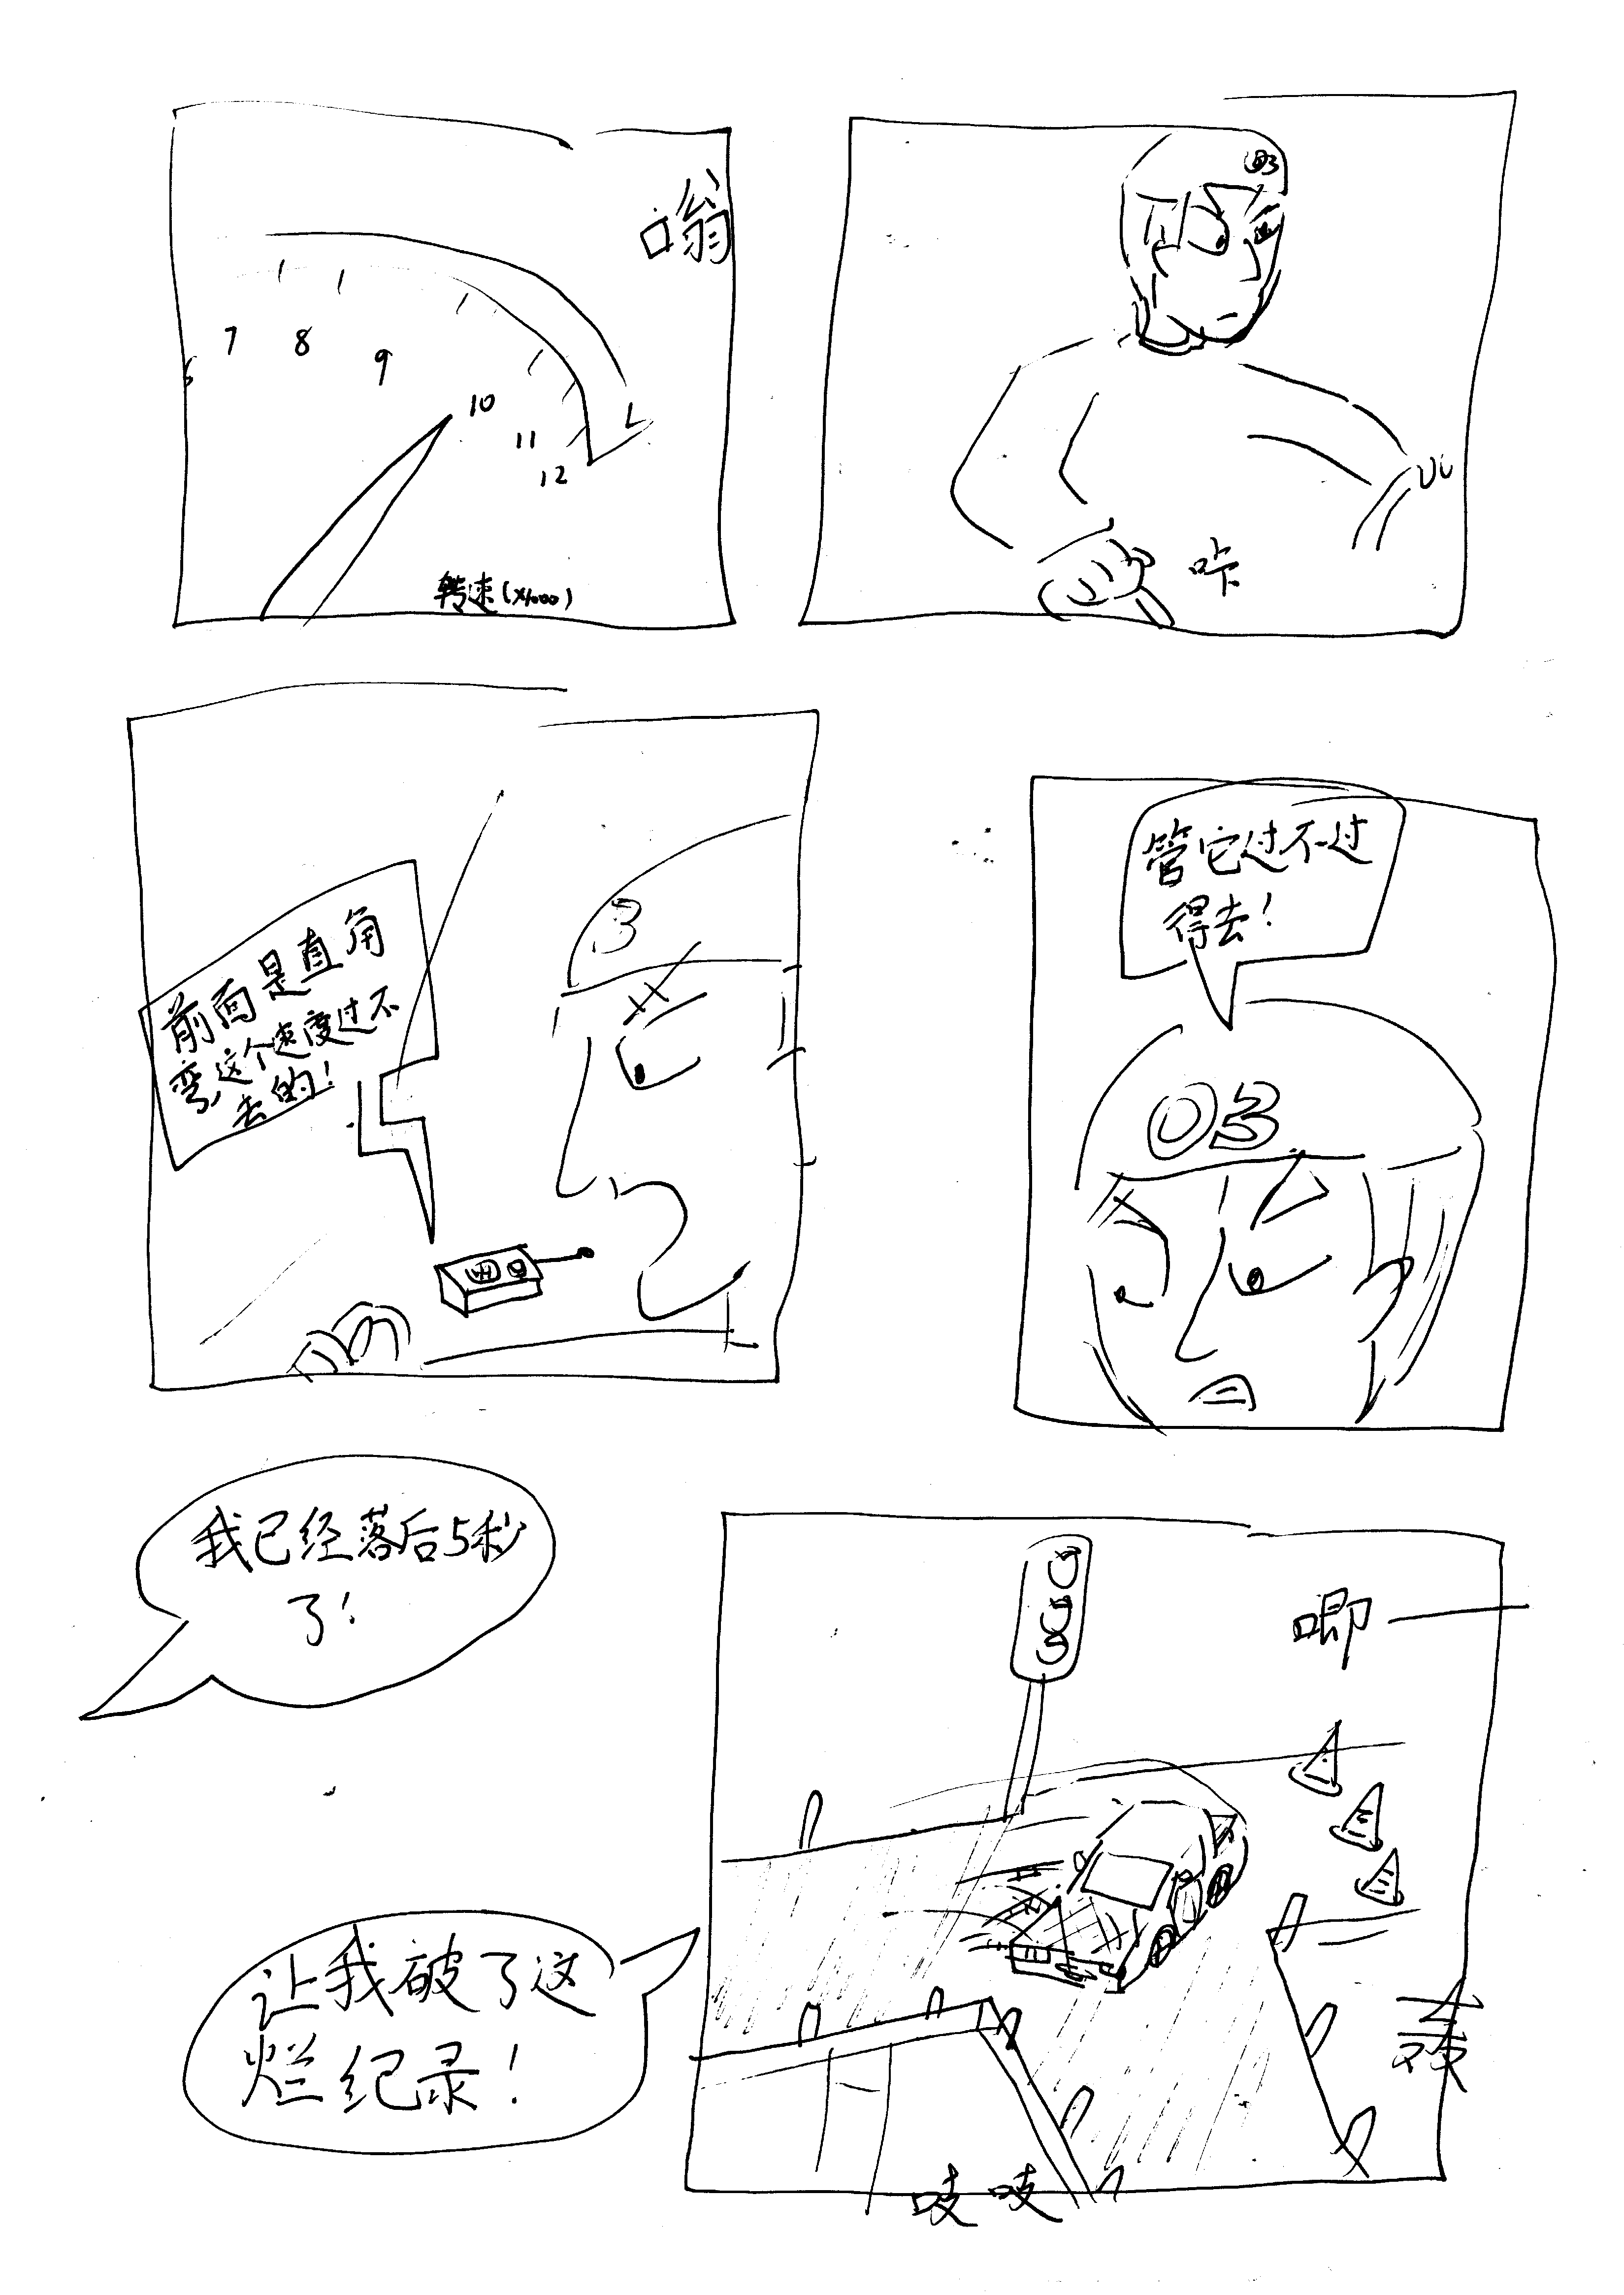 嗡
7
8
9
10
11
12
转速(x1000)
03
咔
3
前面是直角
弯,这个速度过不
去的!
管它过不过
得去!
03
我已经落后5秒
了!
唧
让我破了这
烂纪录!
吱吱